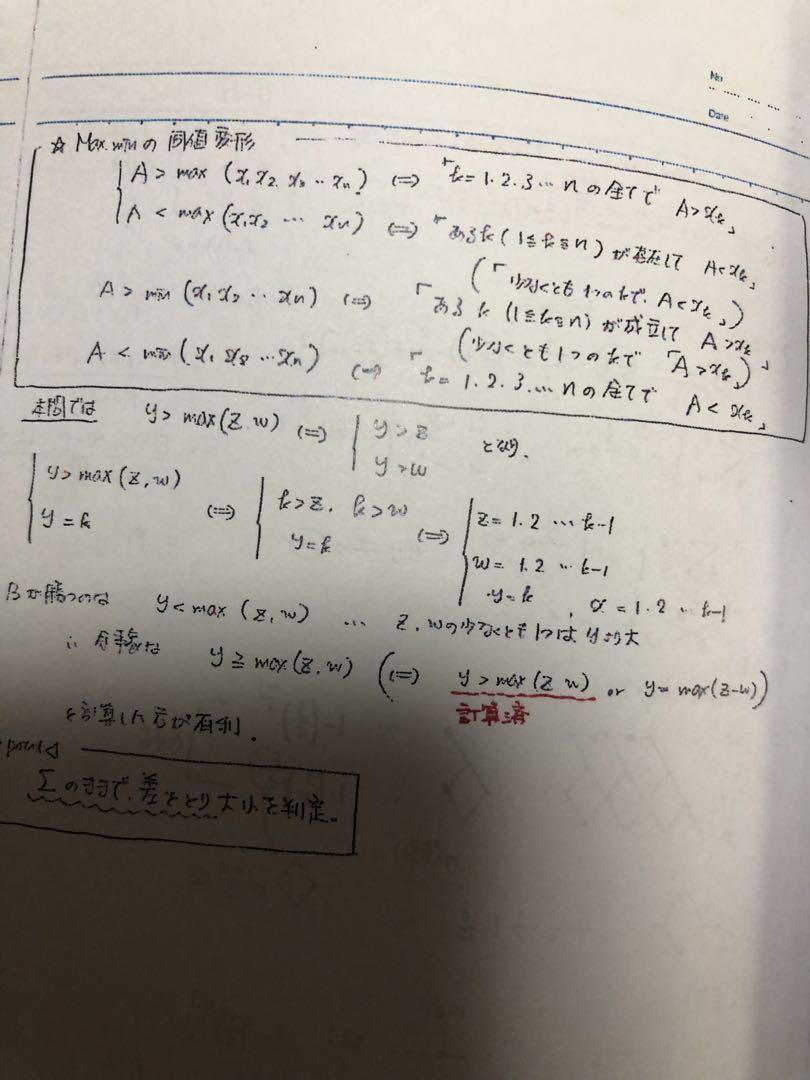 No
Date
☆ Max.minの同値変形
A > max (x₁ x₂ x₃ ‥ xₙ) ⇔ 「k=1.2.3…nの全てで A>xₖ」
A < max(x₁x₂ … xₙ) ⇔ 「あるk(1≦k≦n)が存在して A<xₖ」
(「少なくとも1つのkで.A<xₖ」)
A > min (x₁ x₂ ‥ xₙ) ⇔ 「あるk (1≦k≦n)が成立して A>xₖ」
(少なくとも1つのkで「A>xₖ」)
A < min(x₁ x₂ …xₙ) ⇔ 「k=1.2.3.…nの全てで A<xₖ」
本問では y>max(z.w) ⇔ { y>z y>w となり.
{ y>max(z,w) y=k ⇔ { k>z, k>w y=k ⇔ { z=1.2 … k-1 w=1.2 … k-1 y=k , x=1.2 ‥ k-1
Bが勝つのは y<max (z,w) … z,wの少なくとも1つはyより大
y≧max(z,w) (⇔ y>max(z w) or y=max(z-w))
計算済
を計算した方が有利.
point
Σのままで.差をとり大小を判定。